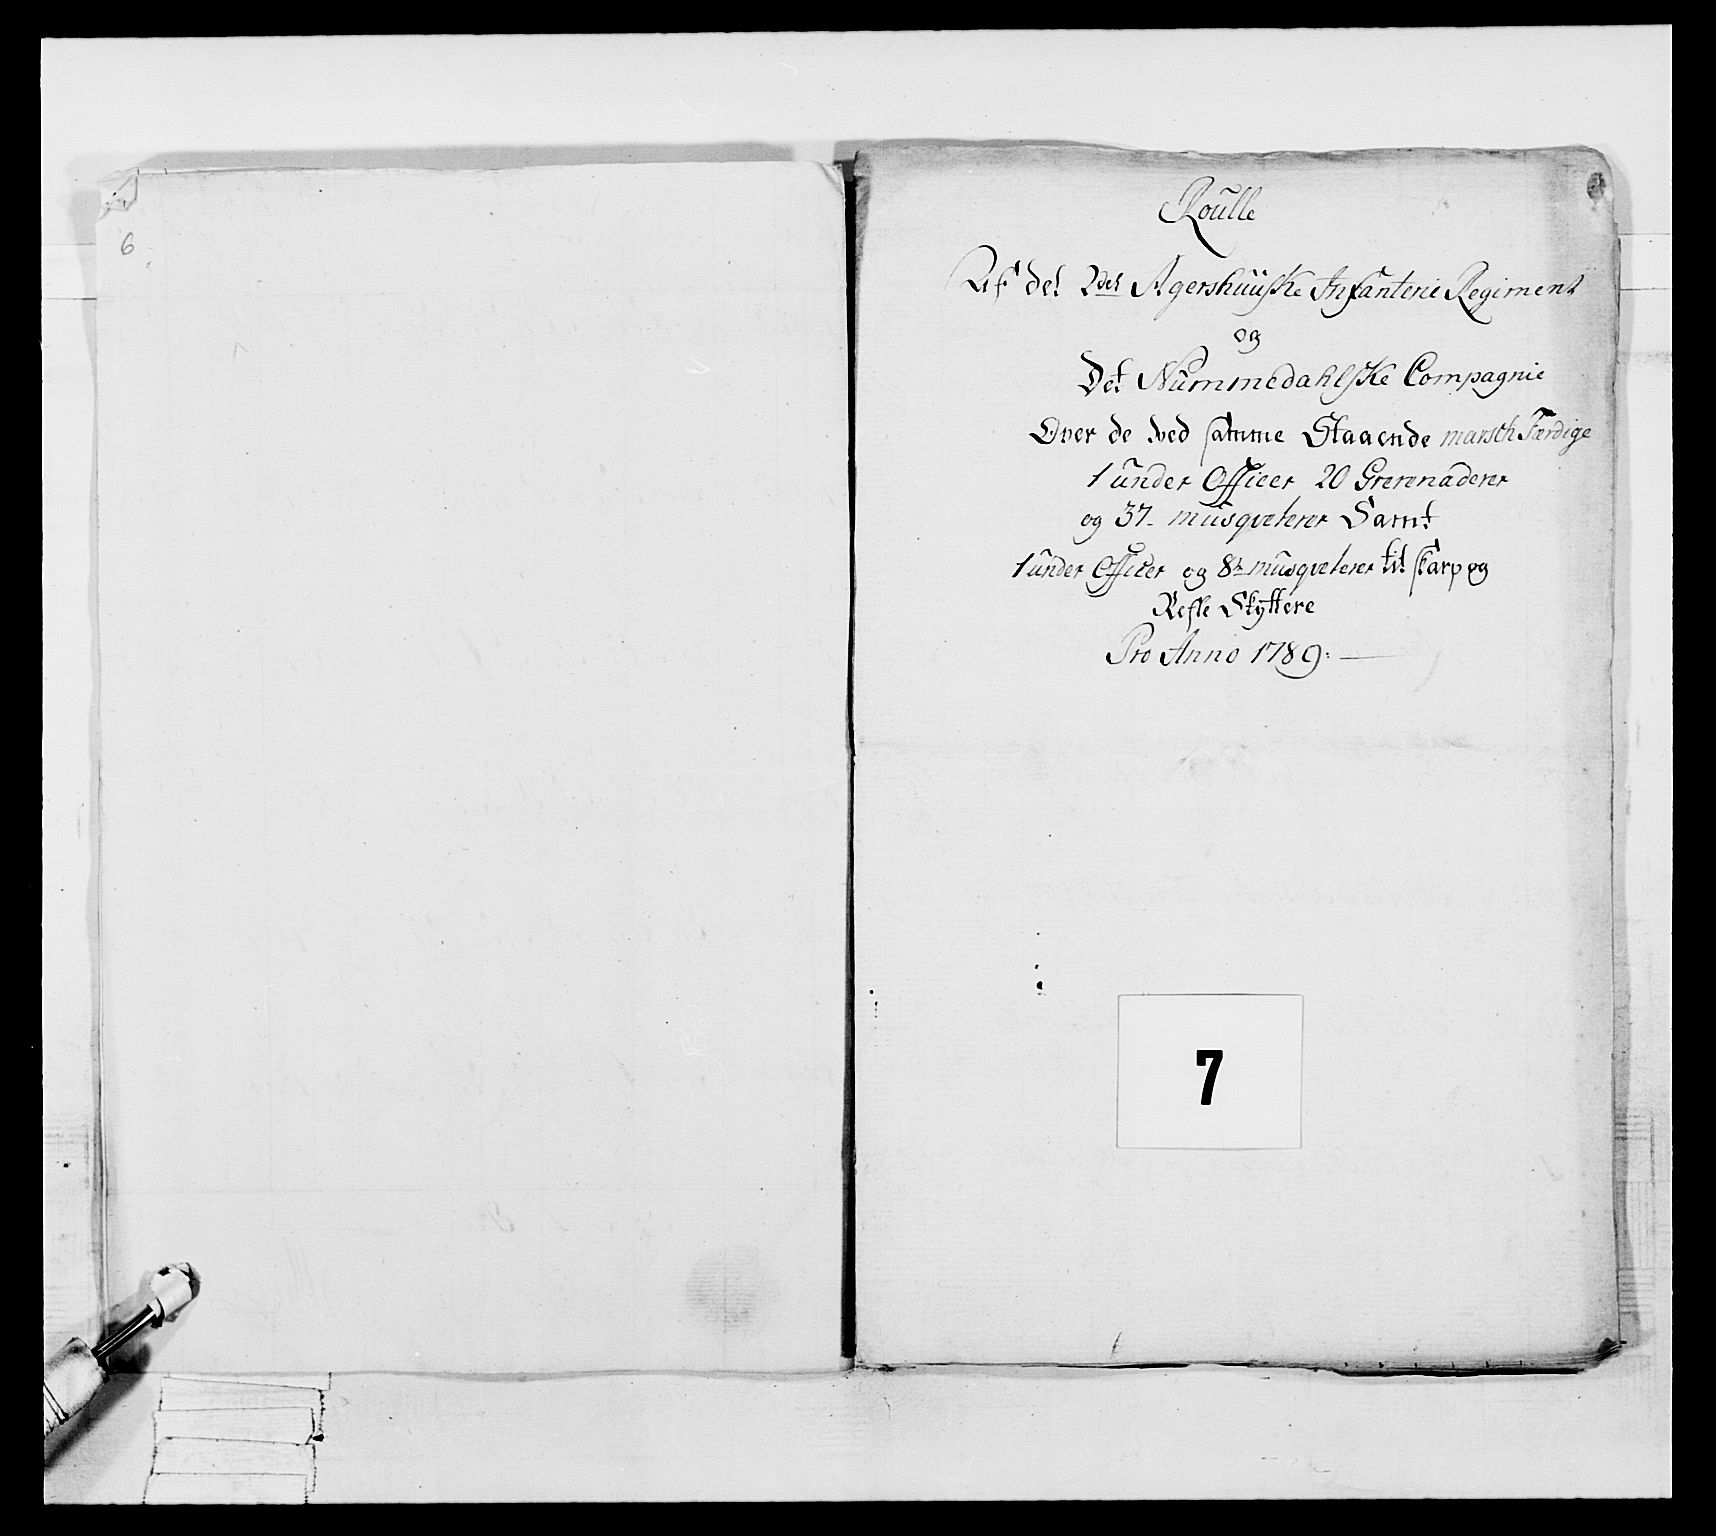 6
Roulle
Af det 2det Agershuüske Infanterie Regiment
og
Det Nummedahlske Compagnie
Over de ved samme Staaende marsch Færdige
1 under Officer 20 Grerenaderer
og 37. musqveterer Samt
1 under Officer og 8te musqveterer til skarp og
Refle Skyttere
Pro Anno 1789.
7